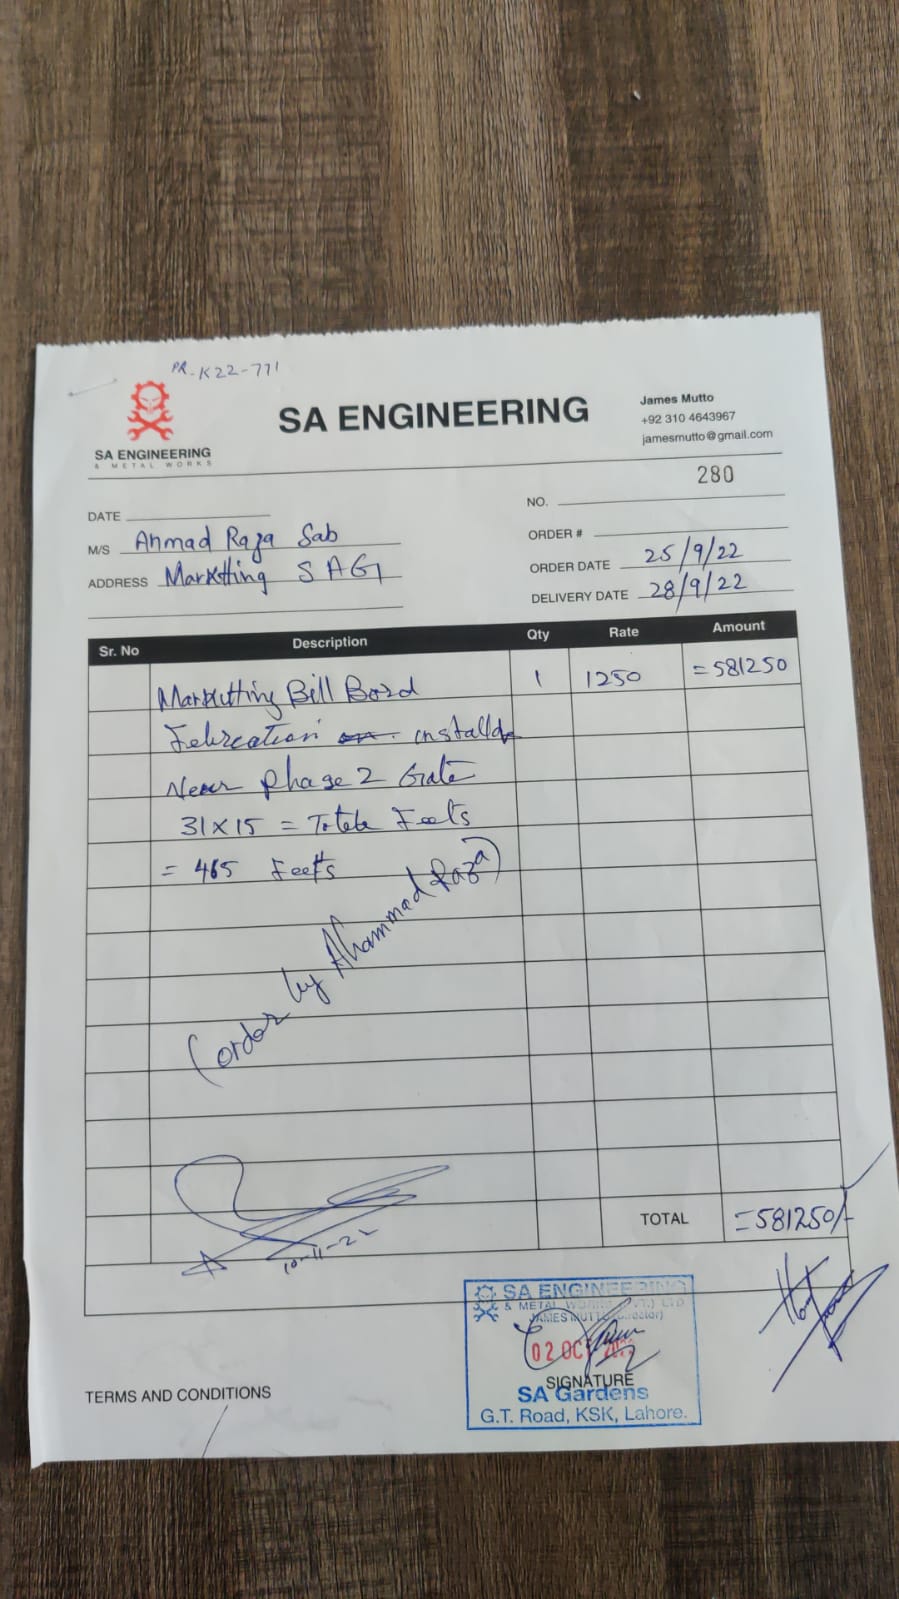 PR-K22-771
SA ENGINEERING
& METAL WORKS
SA ENGINEERING
James Mutto
+92 310 4643967
jamesmutto@gmail.com
280
DATE
NO.
M/S Ahmad Raza Sab
ORDER #
ADDRESS Marktting SAG
ORDER DATE 25/9/22
DELIVERY DATE 28/9/22
Sr. No Description Qty Rate Amount
Markutting Bill Bord 1 1250 =581250
Febrcation installd
Near Phase 2 Gate
31x15 = Totele Feets
= 465 Feets
(order by Ahammad Raza)
TOTAL =581250/-
10-11-22
SA ENGINEERING
& METAL WORKS (PVT.) LTD
JAMES MUTTO (Director)
02 OCT 2022
SIGNATURE
SA Gardens
G.T. Road, KSK, Lahore.
TERMS AND CONDITIONS